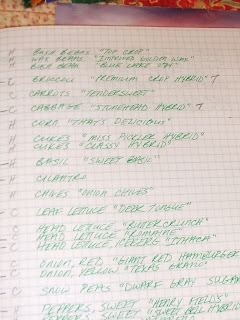 H BUSH BEANS "TOP CROP"
H WAX BEANS "IMPROVED GOLDEN WAX"
H BUSH BEAN "BLUE LAKE 274"
C BROCCOLI "PREMIUM CROP HYBRID" T
C CARROTS "TENDERSWEET"
C CABBAGE "STONEHEAD HYBRID" T
H CORN "THAT'S DELICIOUS"
H CUKES "MISS PICKLER HYBRID"
H CUKES "CLASSY HYBRID"
H BASIL "SWEET BASIC"
H CILANTRO
H CHIVES "ONION CHIVES"
C LEAF LETTUCE "DEER TONGUE"
C HEAD LETTUCE "BUTTERCRUNCH"
C HEAD LETTUCE "ROMAINE"
C HEAD LETTUCE ICEBERG "ITHACA"
C ONION, RED "GIANT RED HAMBURGER
C ONION, YELLOW "TEXAS GRANO"
C SNOW PEAS "DWARF GRAY SUGAR
H PEPPERS, SWEET "HENRY FIELDS"
PEPPERS, SWEET HYBRID